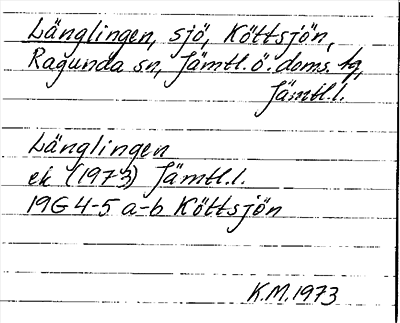 Länglingen, sjö, Köttsjön,
Ragunda sn, Jämtl. ö. doms. tg,
Jämtl.l.
Länglingen
ek (1973) Jämtl.l.
19G 4-5 a-b Köttsjön
K.M. 1973